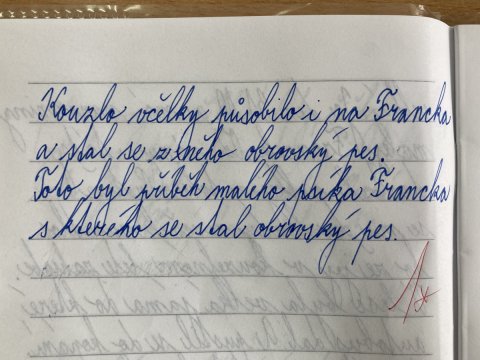 Kouzlo včelky působilo i na Francka
a stal se z něho obrovský pes.
Toto byl příběh malého psíka Francka
s kterého se stal obrovský pes.
1*